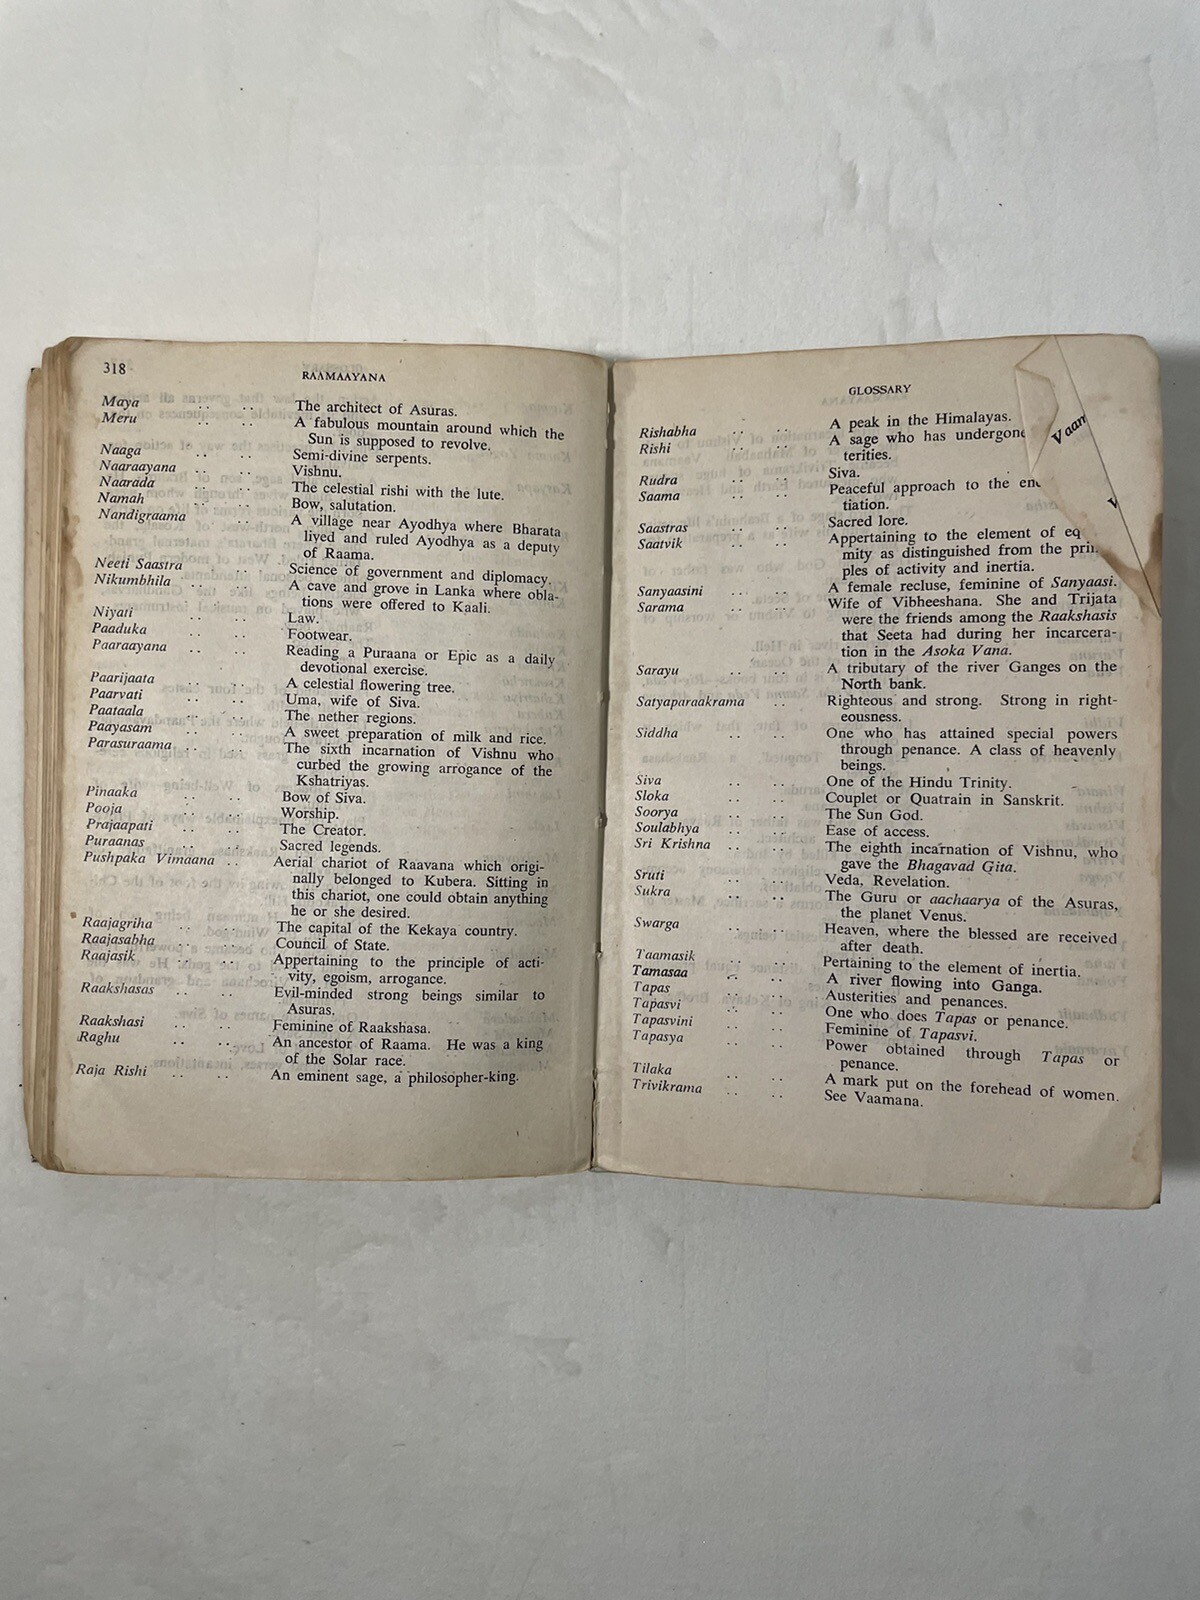 318
RAAMAAYANA
Maya .. .. The architect of Asuras.
Meru .. .. A fabulous mountain around which the
Sun is supposed to revolve.
Naaga .. .. Semi-divine serpents.
Naaraayana .. .. Vishnu.
Naarada .. .. The celestial rishi with the lute.
Namah .. .. Bow, salutation.
Nandigraama .. A village near Ayodhya where Bharata
lived and ruled Ayodhya as a deputy
of Raama.
Neeti Saastra .. Science of government and diplomacy.
Nikumbhila .. .. A cave and grove in Lanka where obla-
tions were offered to Kaali.
Niyati .. .. Law.
Paaduka .. .. Footwear.
Paaraayana .. .. Reading a Puraana or Epic as a daily
devotional exercise.
Paarijaata .. .. A celestial flowering tree.
Paarvati .. .. Uma, wife of Siva.
Paataala .. .. The nether regions.
Paayasam .. .. A sweet preparation of milk and rice.
Parasuraama .. .. The sixth incarnation of Vishnu who
curbed the growing arrogance of the
Kshatriyas.
Pinaaka .. .. Bow of Siva.
Pooja .. .. Worship.
Prajaapati .. .. The Creator.
Puraanas .. .. Sacred legends.
Pushpaka Vimaana .. Aerial chariot of Raavana which origi-
nally belonged to Kubera. Sitting in
this chariot, one could obtain anything
he or she desired.
Raajagriha .. .. The capital of the Kekaya country.
Raajasabha .. .. Council of State.
Raajasik .. .. Appertaining to the principle of acti-
vity, egoism, arrogance.
Raakshasas .. .. Evil-minded strong beings similar to
Asuras.
Raakshasi .. .. Feminine of Raakshasa.
Raghu .. .. An ancestor of Raama. He was a king
of the Solar race.
Raja Rishi .. .. An eminent sage, a philosopher-king.
GLOSSARY
Rishabha .. .. A peak in the Himalayas.
Rishi .. .. A sage who has undergone
terities.
Rudra .. .. Siva.
Saama .. .. Peaceful approach to the
tiation.
Saastras .. .. Sacred lore.
Saatvik .. .. Appertaining to the element of eq
mity as distinguished from the prin
ples of activity and inertia.
Sanyaasini .. .. A female recluse, feminine of Sanyaasi.
Sarama .. .. Wife of Vibheeshana. She and Trijata
were the friends among the Raakshasis
that Seeta had during her incarcera-
tion in the Asoka Vana.
Sarayu .. .. A tributary of the river Ganges on the
North bank.
Satyaparaakrama .. Righteous and strong. Strong in right-
eousness.
Siddha .. .. One who has attained special powers
through penance. A class of heavenly
beings.
Siva .. .. One of the Hindu Trinity.
Sloka .. .. Couplet or Quatrain in Sanskrit.
Soorya .. .. The Sun God.
Soulabhya .. .. Ease of access.
Sri Krishna .. .. The eighth incarnation of Vishnu, who
gave the Bhagavad Gita.
Sruti .. .. Veda, Revelation.
Sukra .. .. The Guru or aachaarya of the Asuras,
the planet Venus.
Swarga .. .. Heaven, where the blessed are received
after death.
Taamasik .. .. Pertaining to the element of inertia.
Tamasaa .. .. A river flowing into Ganga.
Tapas .. .. Austerities and penances.
Tapasvi .. .. One who does Tapas or penance.
Tapasvini .. .. Feminine of Tapasvi.
Tapasya .. .. Power obtained through Tapas or
penance.
Tilaka .. .. A mark put on the forehead of women.
Trivikrama .. .. See Vaamana.
Vaam
V